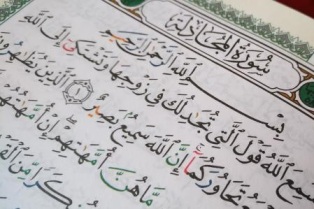 سُورَةُ الْمُجَادِلَةِ
بِسْمِ اللَّهِ الرَّحْمَٰنِ الرَّحِيمِ
سَمِعَ اللَّهُ قَوْلَ الَّتِي تُجَٰدِلُكَ فِي زَوْجِهَا وَتَشْتَكِي إِلَى اللَّهِ
تَحَاوُرَكُمَا إِنَّ اللَّهَ سَمِيعٌ بَصِيرٌ ١ الَّذِينَ يُظَٰهِرُونَ
مَا هُنَّ أُمَّهَٰتِهِمْ إِنْ أُمَّهَٰتُهُمْ
مُنكَرًا مِّنَ الْقَوْلِ